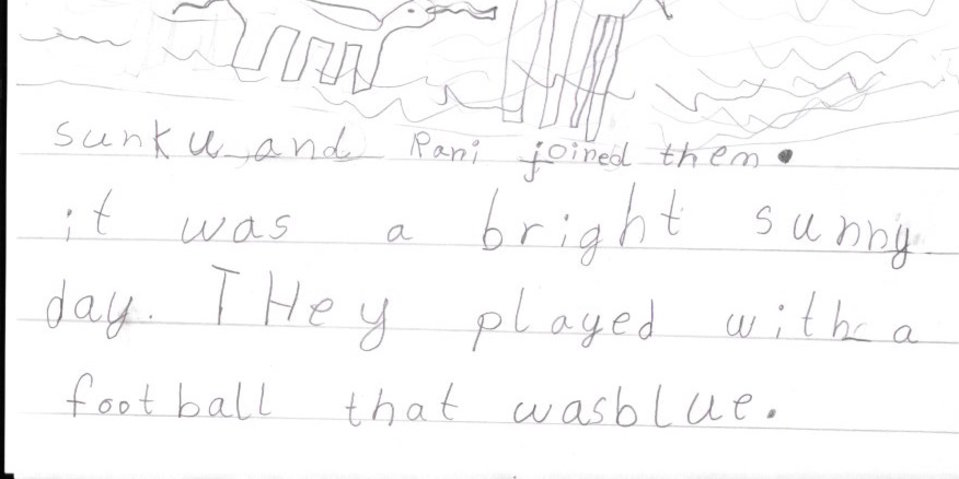 sunku and Rani joined them.
it was a bright sunny
day. THey played with a
foot ball that wasblue.